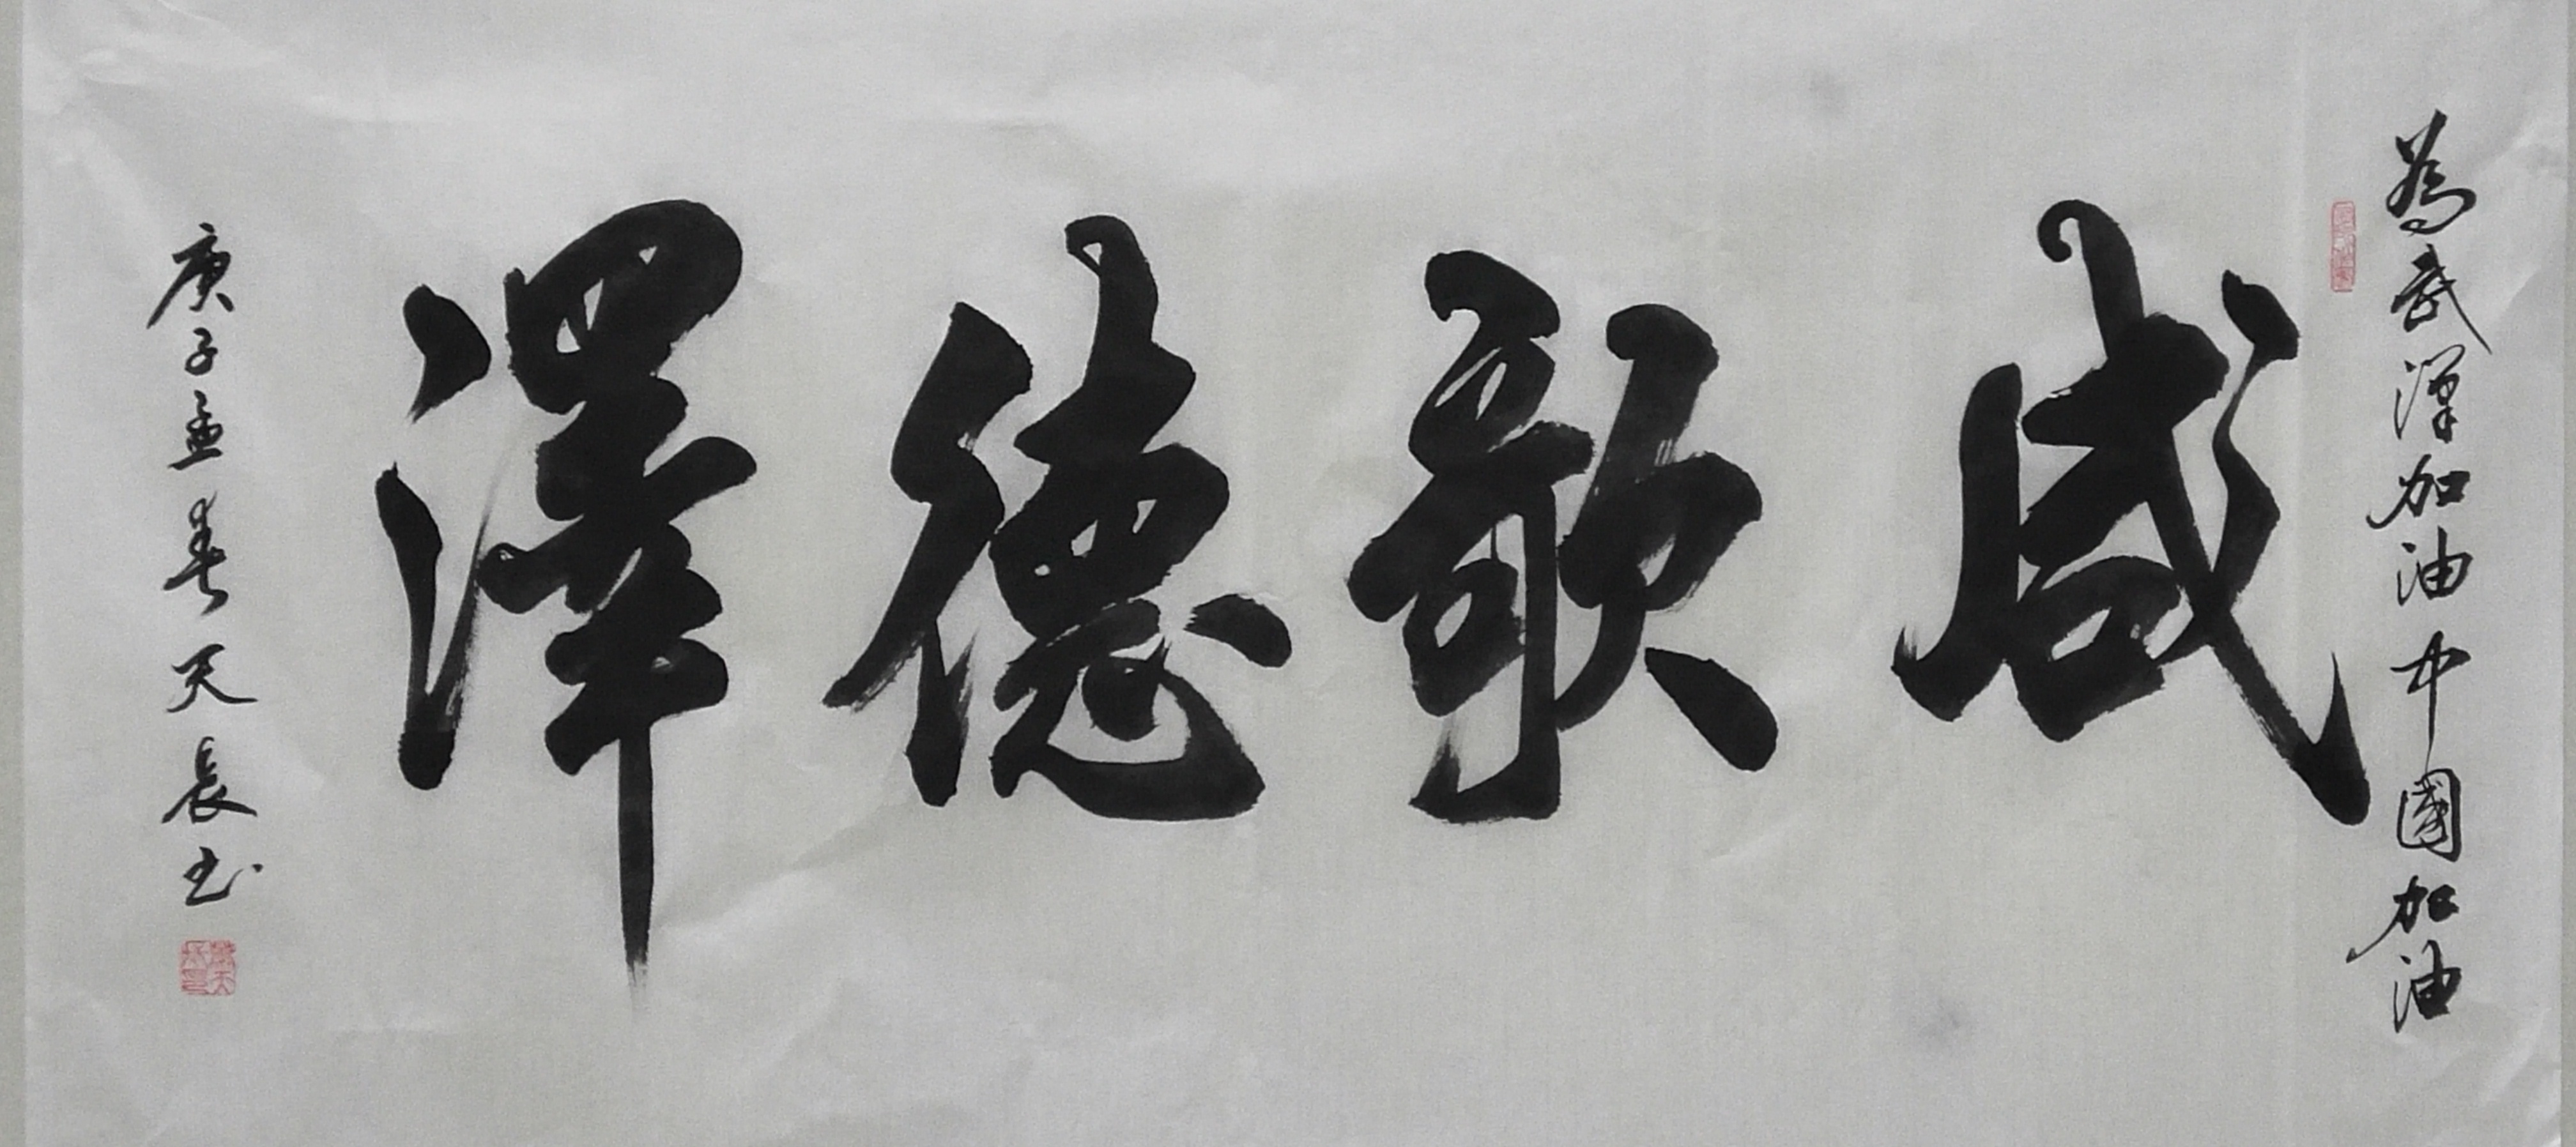 為武漢加油中國加油
咸歌德澤
庚子孟春天長书